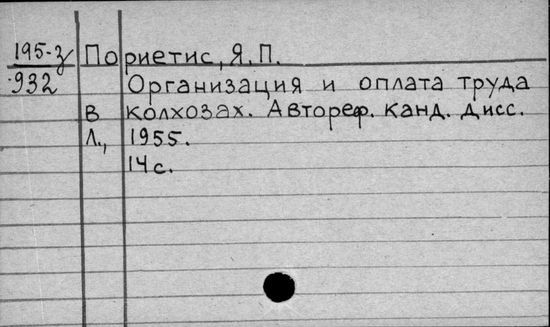 195-з Пориетис, Я.П.
932 Организация и оплата труда
в колхозах. Автореф. канд. дисс.
Л., 1955.
14 с.